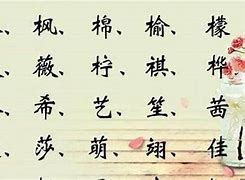 、枫、棉、榆、檬
、薇、柠、祺、桦
、希、艺、笙、茜
、莎、萌、翊、佳